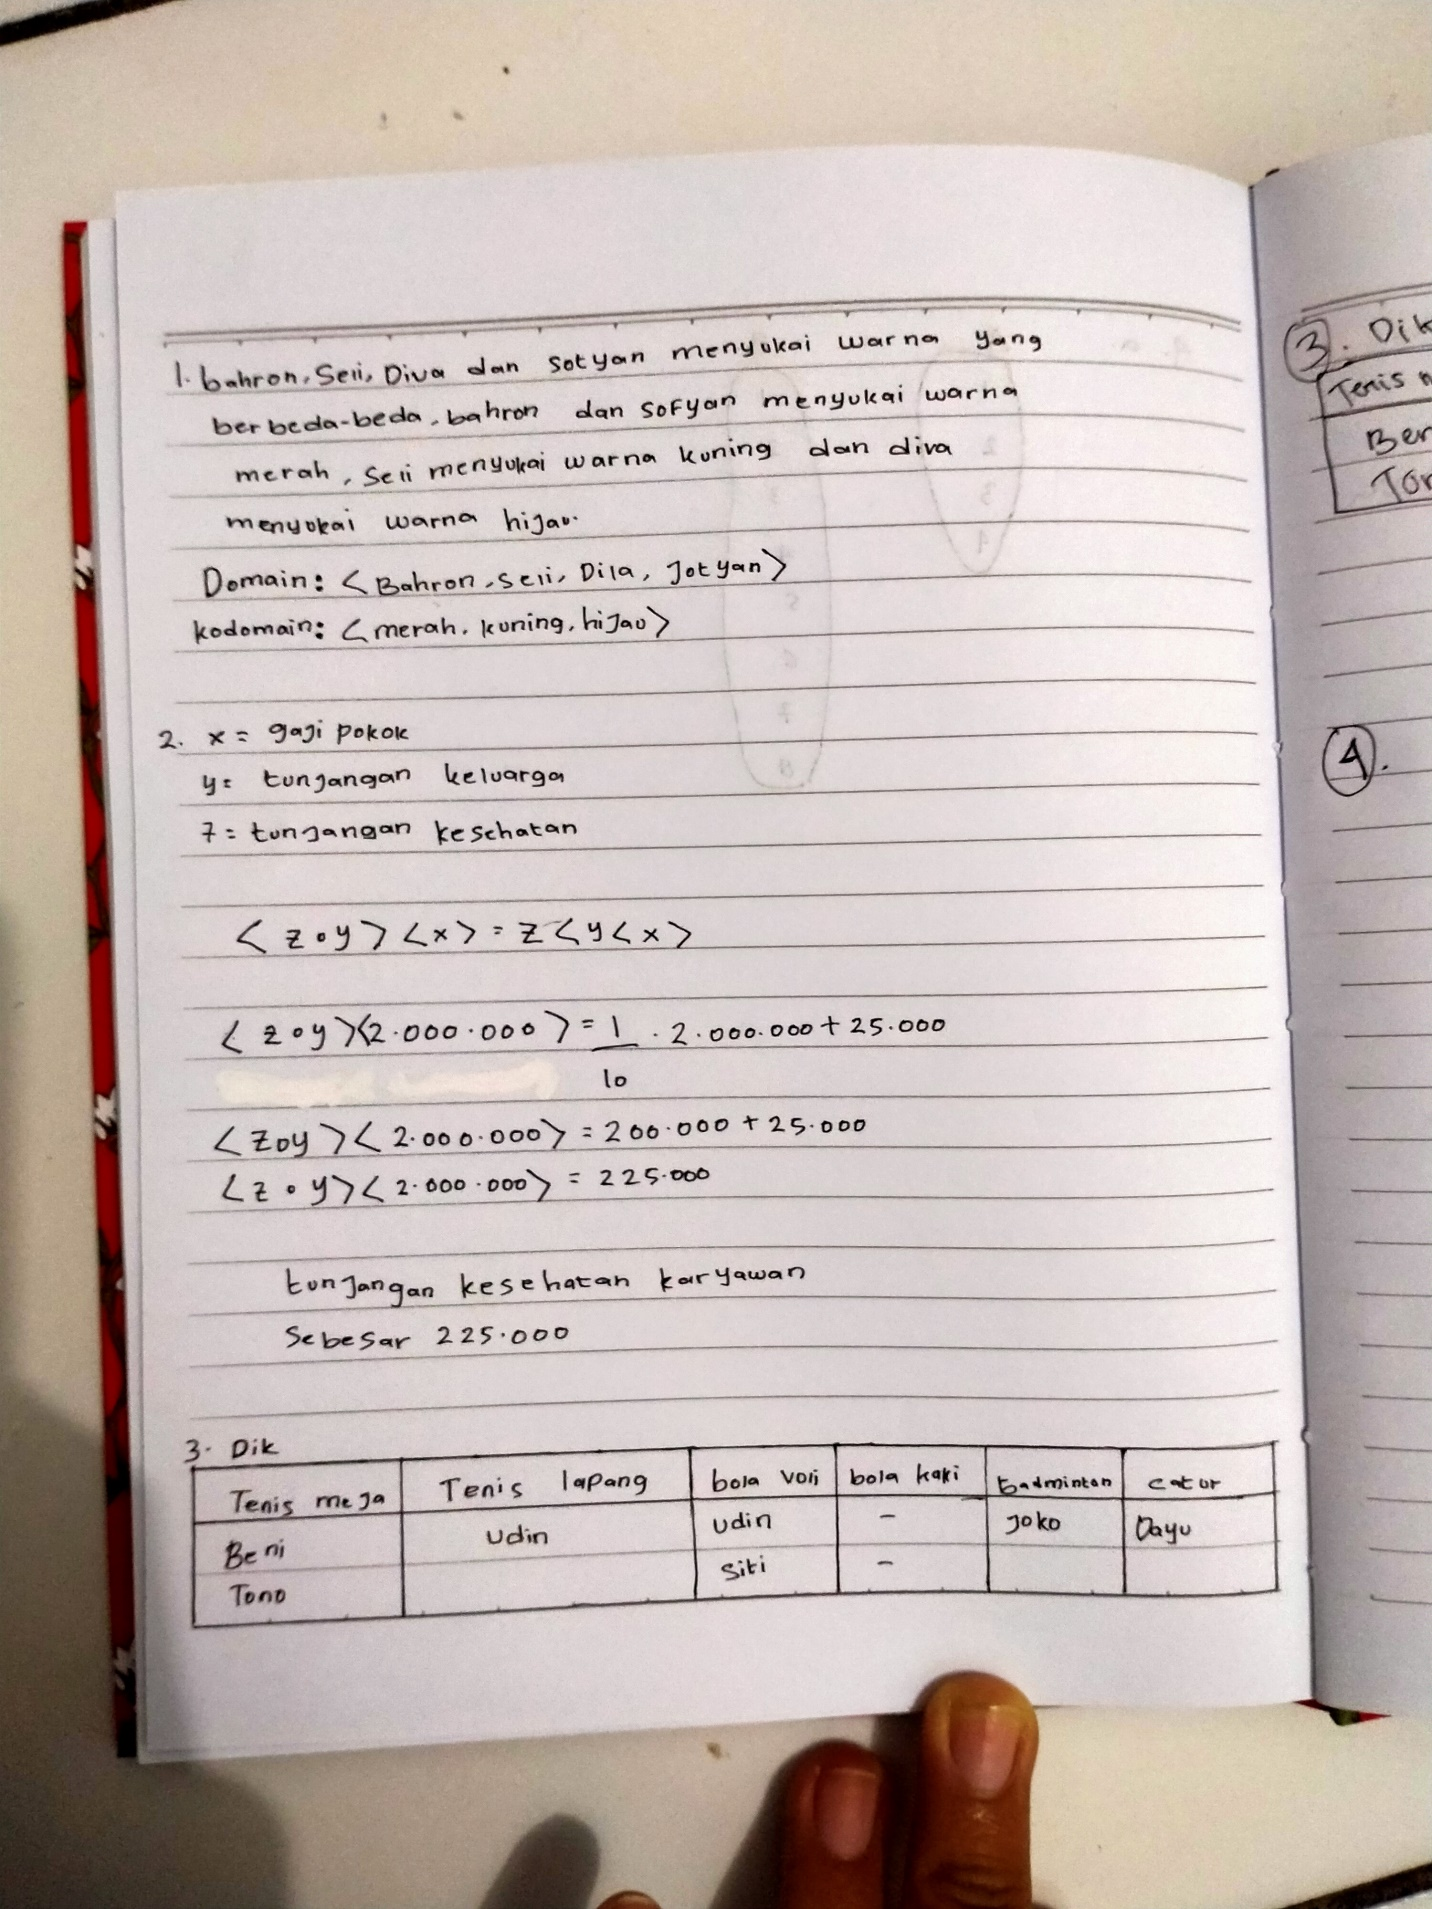 1. bahron, Seli, Diva dan sotyan menyukai warna yang
berbeda-beda, bahron dan sofyan menyukai warna
merah, Seli menyukai warna kuning dan diva
menyukai warna hijau.
Domain: < Bahron, seli, Dila, Jotyan>
kodomain: < merah, kuning, hijau>
2. x = gaji pokok
y = tunjangan keluarga
7 = tunjangan kesehatan
< z o y > <x> = z < y < x >
< z o y ><2.000.000> = 1 . 2.000.000 + 25.000
10
<zoy>< 2.000.000> = 200.000 + 25.000
<z o y>< 2.000.000> = 225.000
tunjangan kesehatan karyawan
Sebesar 225.000
3. Dik
Tenis meja Tenis lapang bola voli bola kaki badminton catur
Beni Udin Udin - Joko Dayu
Tono Siti -
3. Dik
Tenis
4.